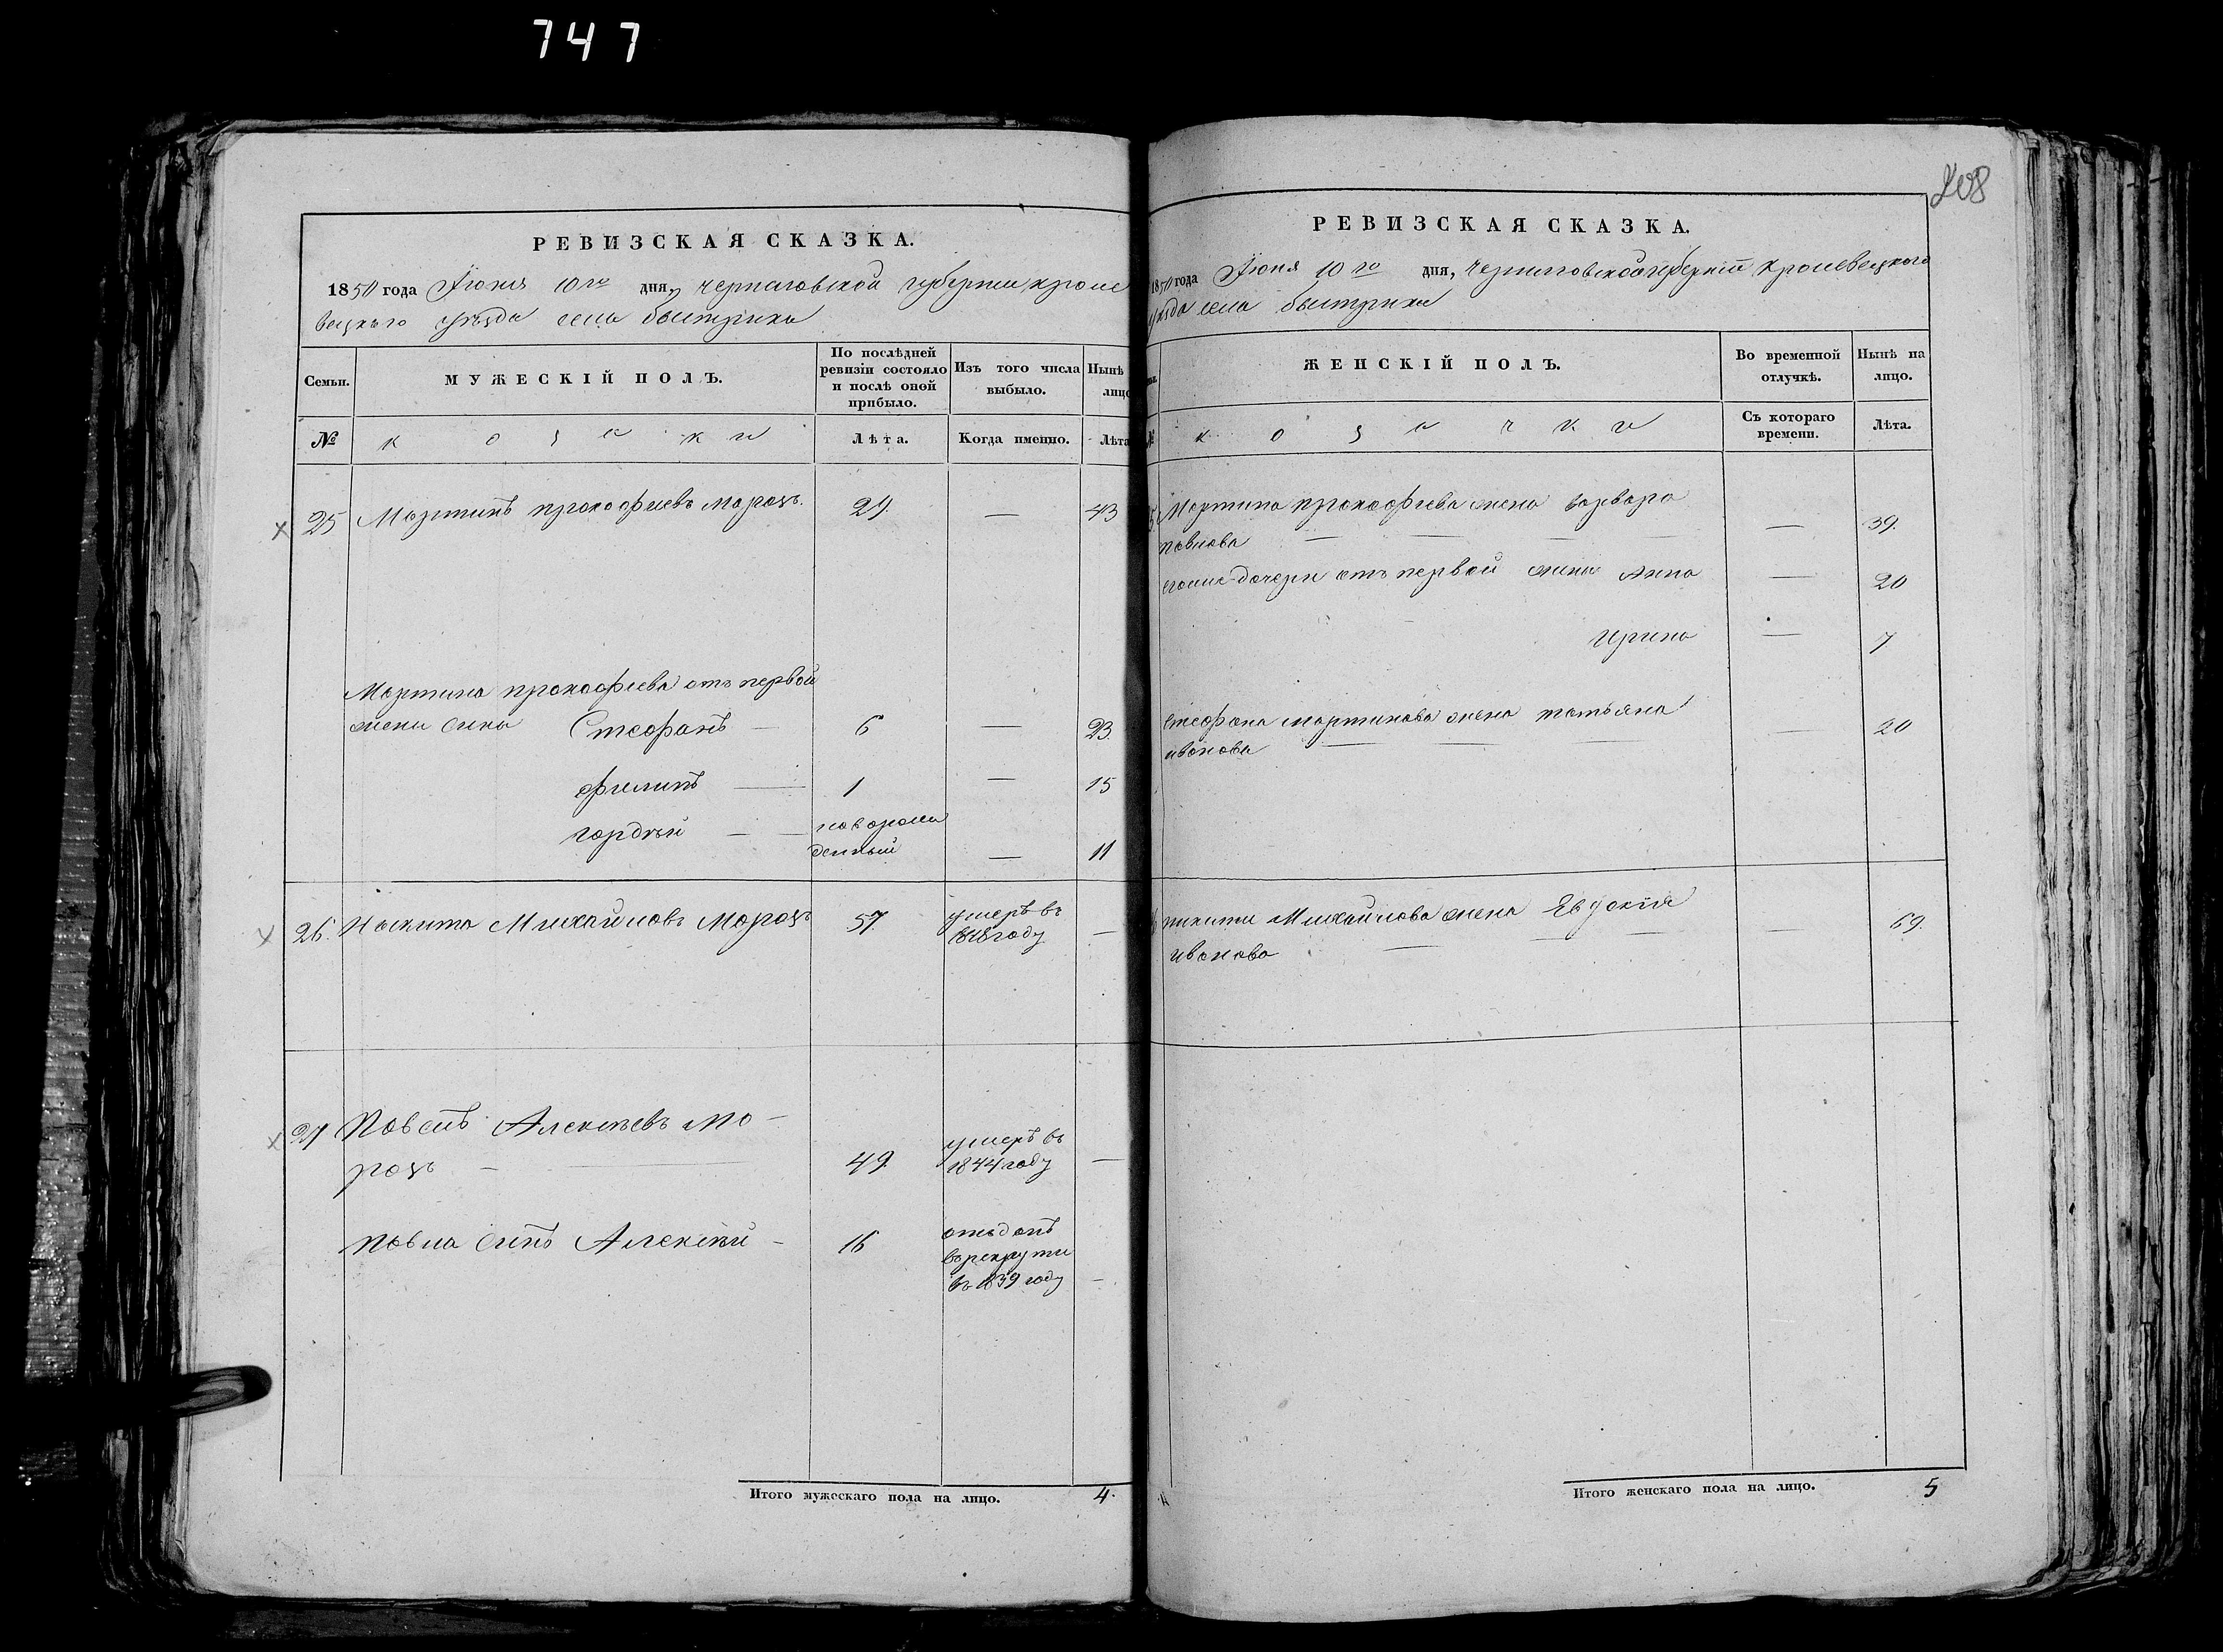 747
РЕВИЗСКАЯ СКАЗКА.
1850 года Іюня 10го дня, черниговской губерніи кроле
вецкаго уѣзда села быстрика
Семьи.
МУЖЕСКІЙ ПОЛЪ.
По послѣдней ревизіи состояло и послѣ оной прибыло.
Изъ того числа выбыло.
Нынѣ лицо
№
козаки
Лѣта.
Когда именно.
Лѣта
25 Мартинъ прокофиевъ морозъ. 29 — 43
Мартина прокофиева отъ первой
жены сины Стефанъ — 6 — 23.
филипъ — 1 — 15
гордѣй — новорож
денный — 11
26. Никита Михайловъ Морозъ 57 умеръ въ
1848 году —
27 Павелъ Алексѣевъ мо-
розъ — 49. умеръ въ
1844 году —
павла синъ Алексѣй - 16 отъданъ
въ рекруты
въ 1839 году —
Итого мужескаго пола на лицо. 4.
208
РЕВИЗСКАЯ СКАЗКА.
1850 года Іюня 10го дня, черниговской губерніи кролевецкого
уѣзда села быстрика
ЖЕНСКІЙ ПОЛЪ.
Во временной отлучкѣ.
Нынѣ на лицо.
№
козачки
Съ котораго времени.
Лѣта.
Мартина прокофиева жена варвара
павлова — 39.
его же дочери отъ первой жены Анна — 20
ирина — 7
стефана мартинова жена татьяна
иванова — 20
никиты Михайлова жена Евдокія
иванова — 69.
Итого женскаго пола на лицо. 5